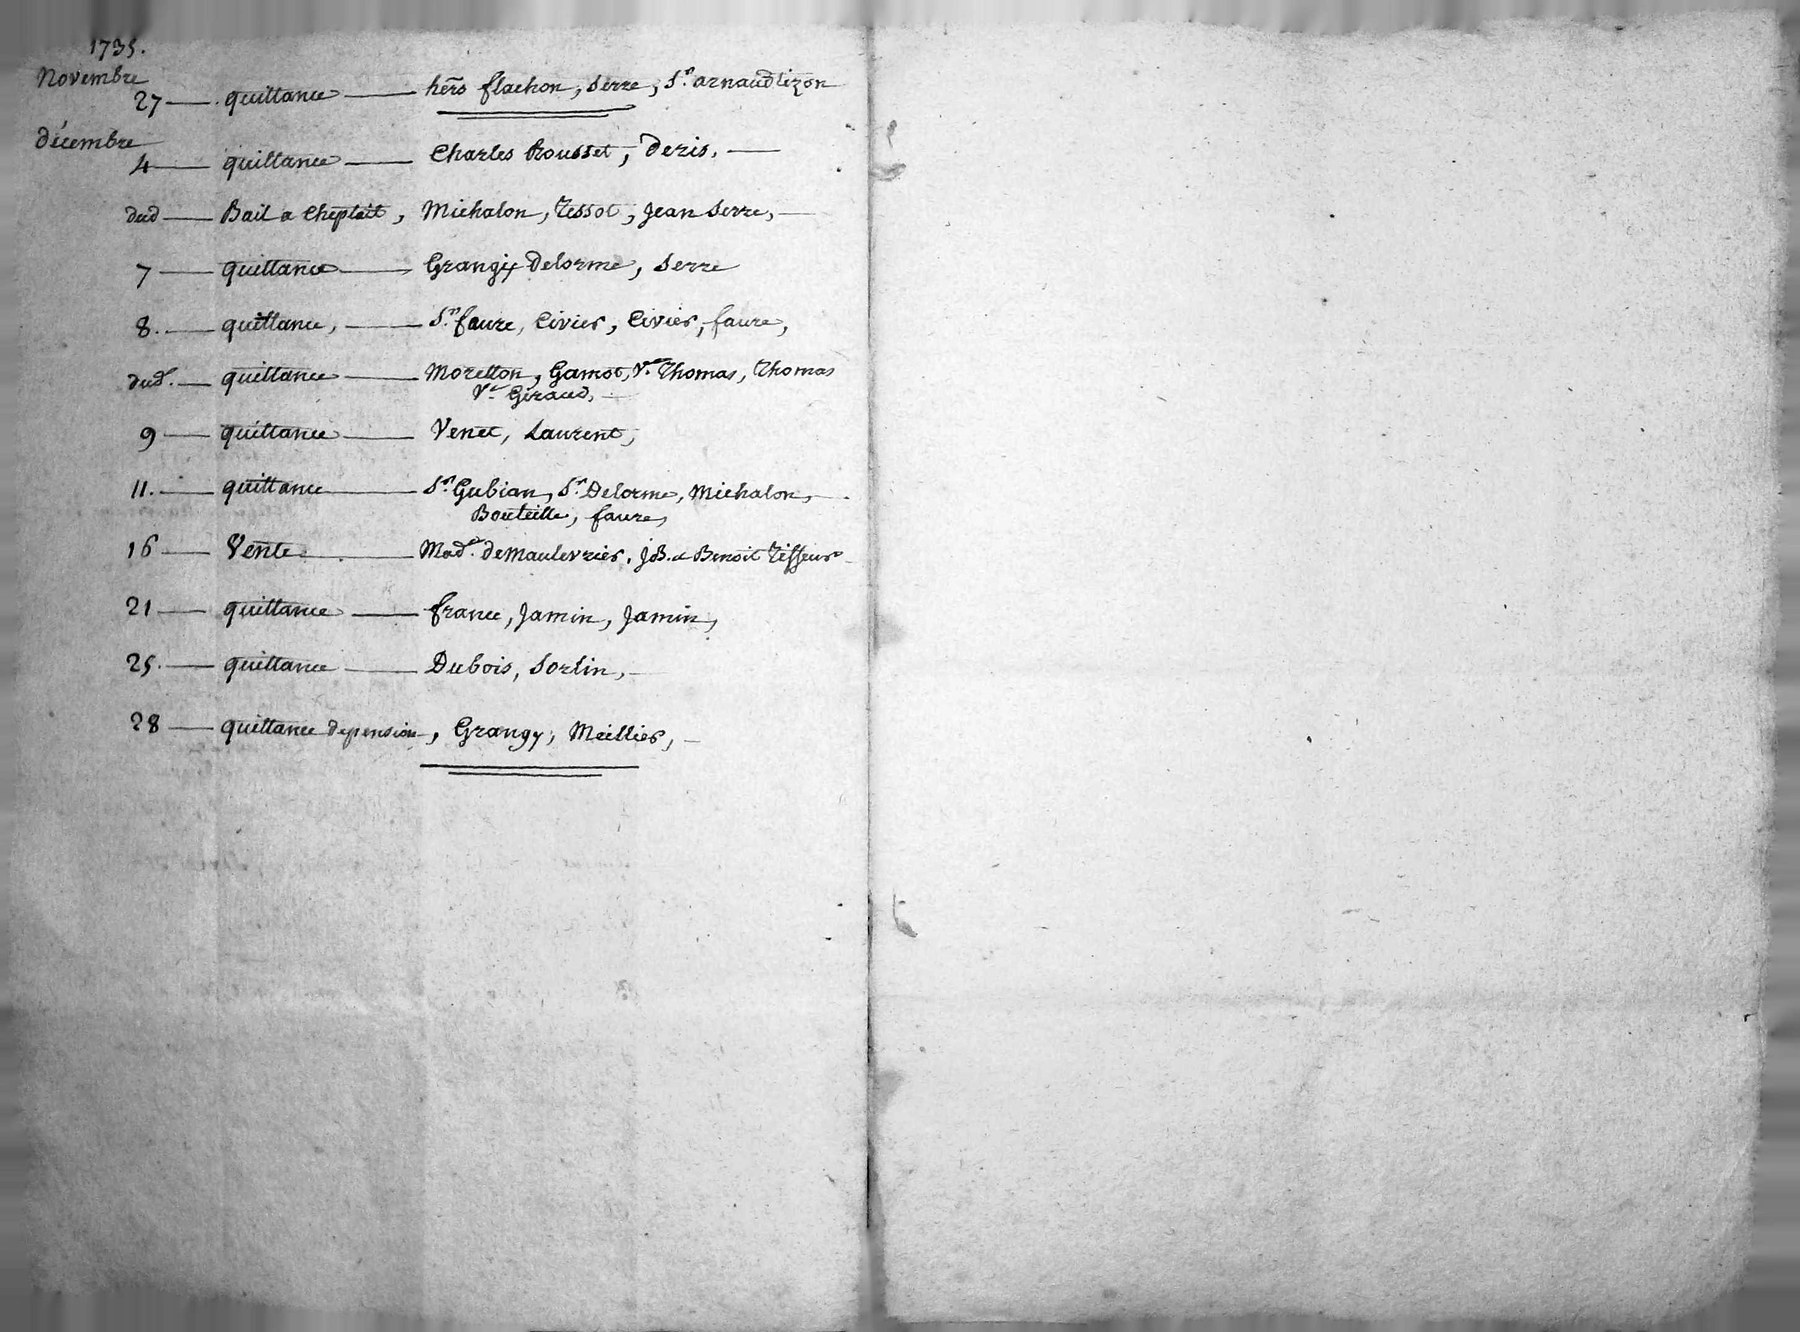 1735.
Novembre
27 — quittance — hērs flachon, Serre, Sr. arnaud lizon
décembre
4 — quittance — Charles Rousset, Deris. —
dud — Bail a Cheptait, Michalon, Tessot, Jean Serre, —
7 — quittance — Grangix Delorme, Serre
8. — quittance, — Sr. faure, Civier, Civier, faure,
dud. — quittance — Moretton, Gamot, Ve. Thomas, Thomas
Ve. Giraud, —
9 — quittance — Venet, Laurent,
11. — quittance — Sr. Gubian, Sr. Delorme, Michalon, —
Bouteille, faure,
16 — Vente — Made. de Maulevrier, JB. & Benoit Tisseur
21 — quittance — france, Jamin, Jamin,
25. — quittance — Dubois, Sorlin, —
28 — quittance de pension, Grangy, Meillier, —